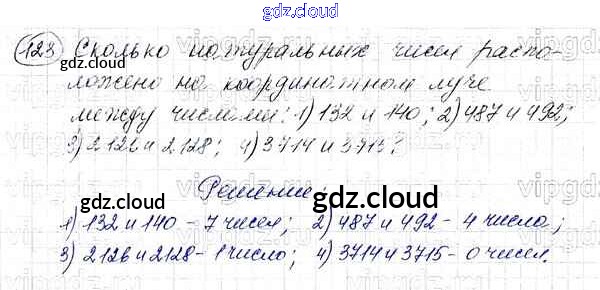 gdz.cloud
123 Сколько натуральных чисел распо-
ложено на координатном луче
между числами: 1) 132 и 140; 2) 487 и 492;
3) 2126 и 2128; 4) 3714 и 3715?
Решение:
1) 132 и 140 - 7 чисел; 2) 487 и 492 - 4 числа;
3) 2126 и 2128 - 1 число; 4) 3714 и 3715 - 0 чисел.
gdz.cloud
gdz.cloud
gdz.cloud
gdz.cloud
gdz.cloud